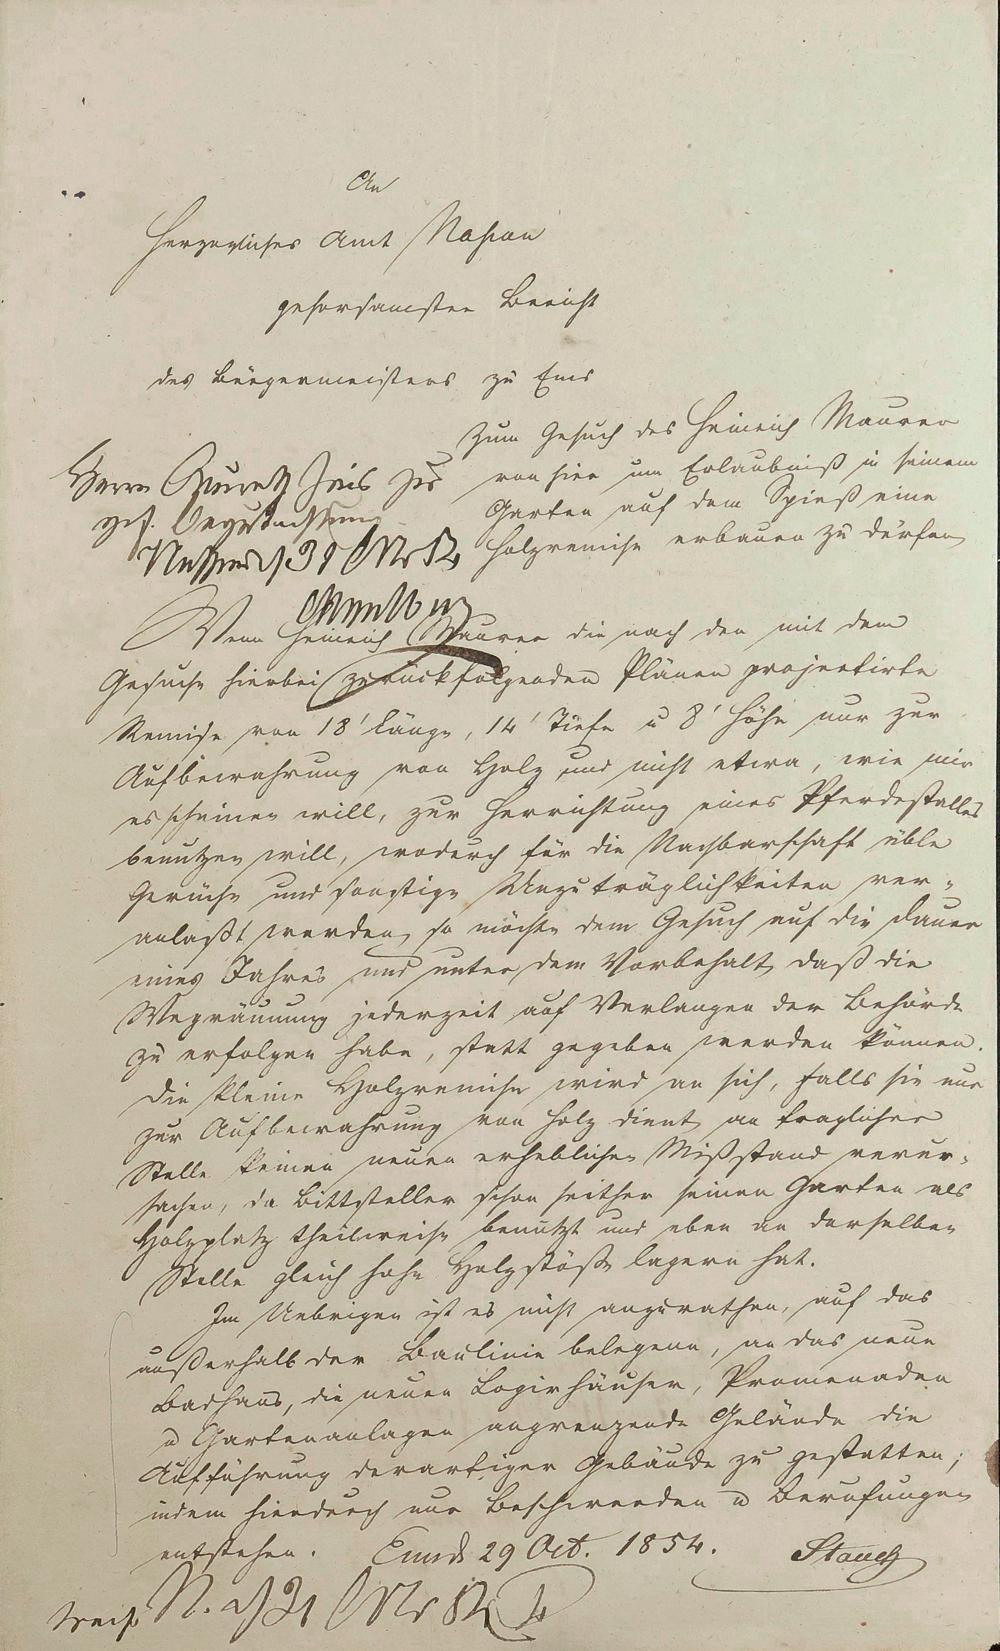 An
Herzogliches Amt Nassau
gehorsamster Bericht
des Bürgermeisters zu Ems
zum Gesuch des Heinrich Maurer
von hier um Erlaubniß in seinem
Garten auf dem Spieß eine
Holzremise erbauen zu dürfen
Herrn zur
gef. Begutachtung
Nassau d 31 Oct 54
Wenn Heinrich Maurer die nach den mit dem
Gesuche hierbei zurückfolgenden Plänen projectirte
Remise von 18' Länge, 14' Tiefe u 8' Höhe nur zur
Aufbewahrung von Holz und nicht etwa, wie mir
es scheinen will, zur Herrichtung eines Pferdestalles
benutzen will, wodurch für die Nachbarschaft üble
Gerüche und sonstige Unzuträglichkeiten ver-
anlaßt werden, so möchte dem Gesuch auf die Dauer
eines Jahres und unter dem Vorbehalt, daß die
Wegräumung jederzeit auf Verlangen der Behörde
zu erfolgen habe, statt gegeben werden können.
Die kleine Holzremise wird an sich, falls sie nur
zur Aufbewahrung von Holz dient, an fraglicher
Stelle keinen neuen erheblichen Mißstand verur-
sachen, da Bittsteller schon seither seinen Garten als
Holzplatz theilweise benutzt und eben an derselben
Stelle gleich hohe Holzstöße lagern hat.
Im Uebrigen ist es nicht anzurathen, auf das
außerhalb der Baulinie belegene, an das neue
Badhaus, die neuen Logirhäuser, Promenaden
u Gartenanlagen angrenzende Gelände die
Aufführung derartiger Gebäude zu gestatten;
indem hierdurch nur Beschwerden u Berufungen
entstehen. Ems d 29 Oct. 1854. Stauch
N. d 31